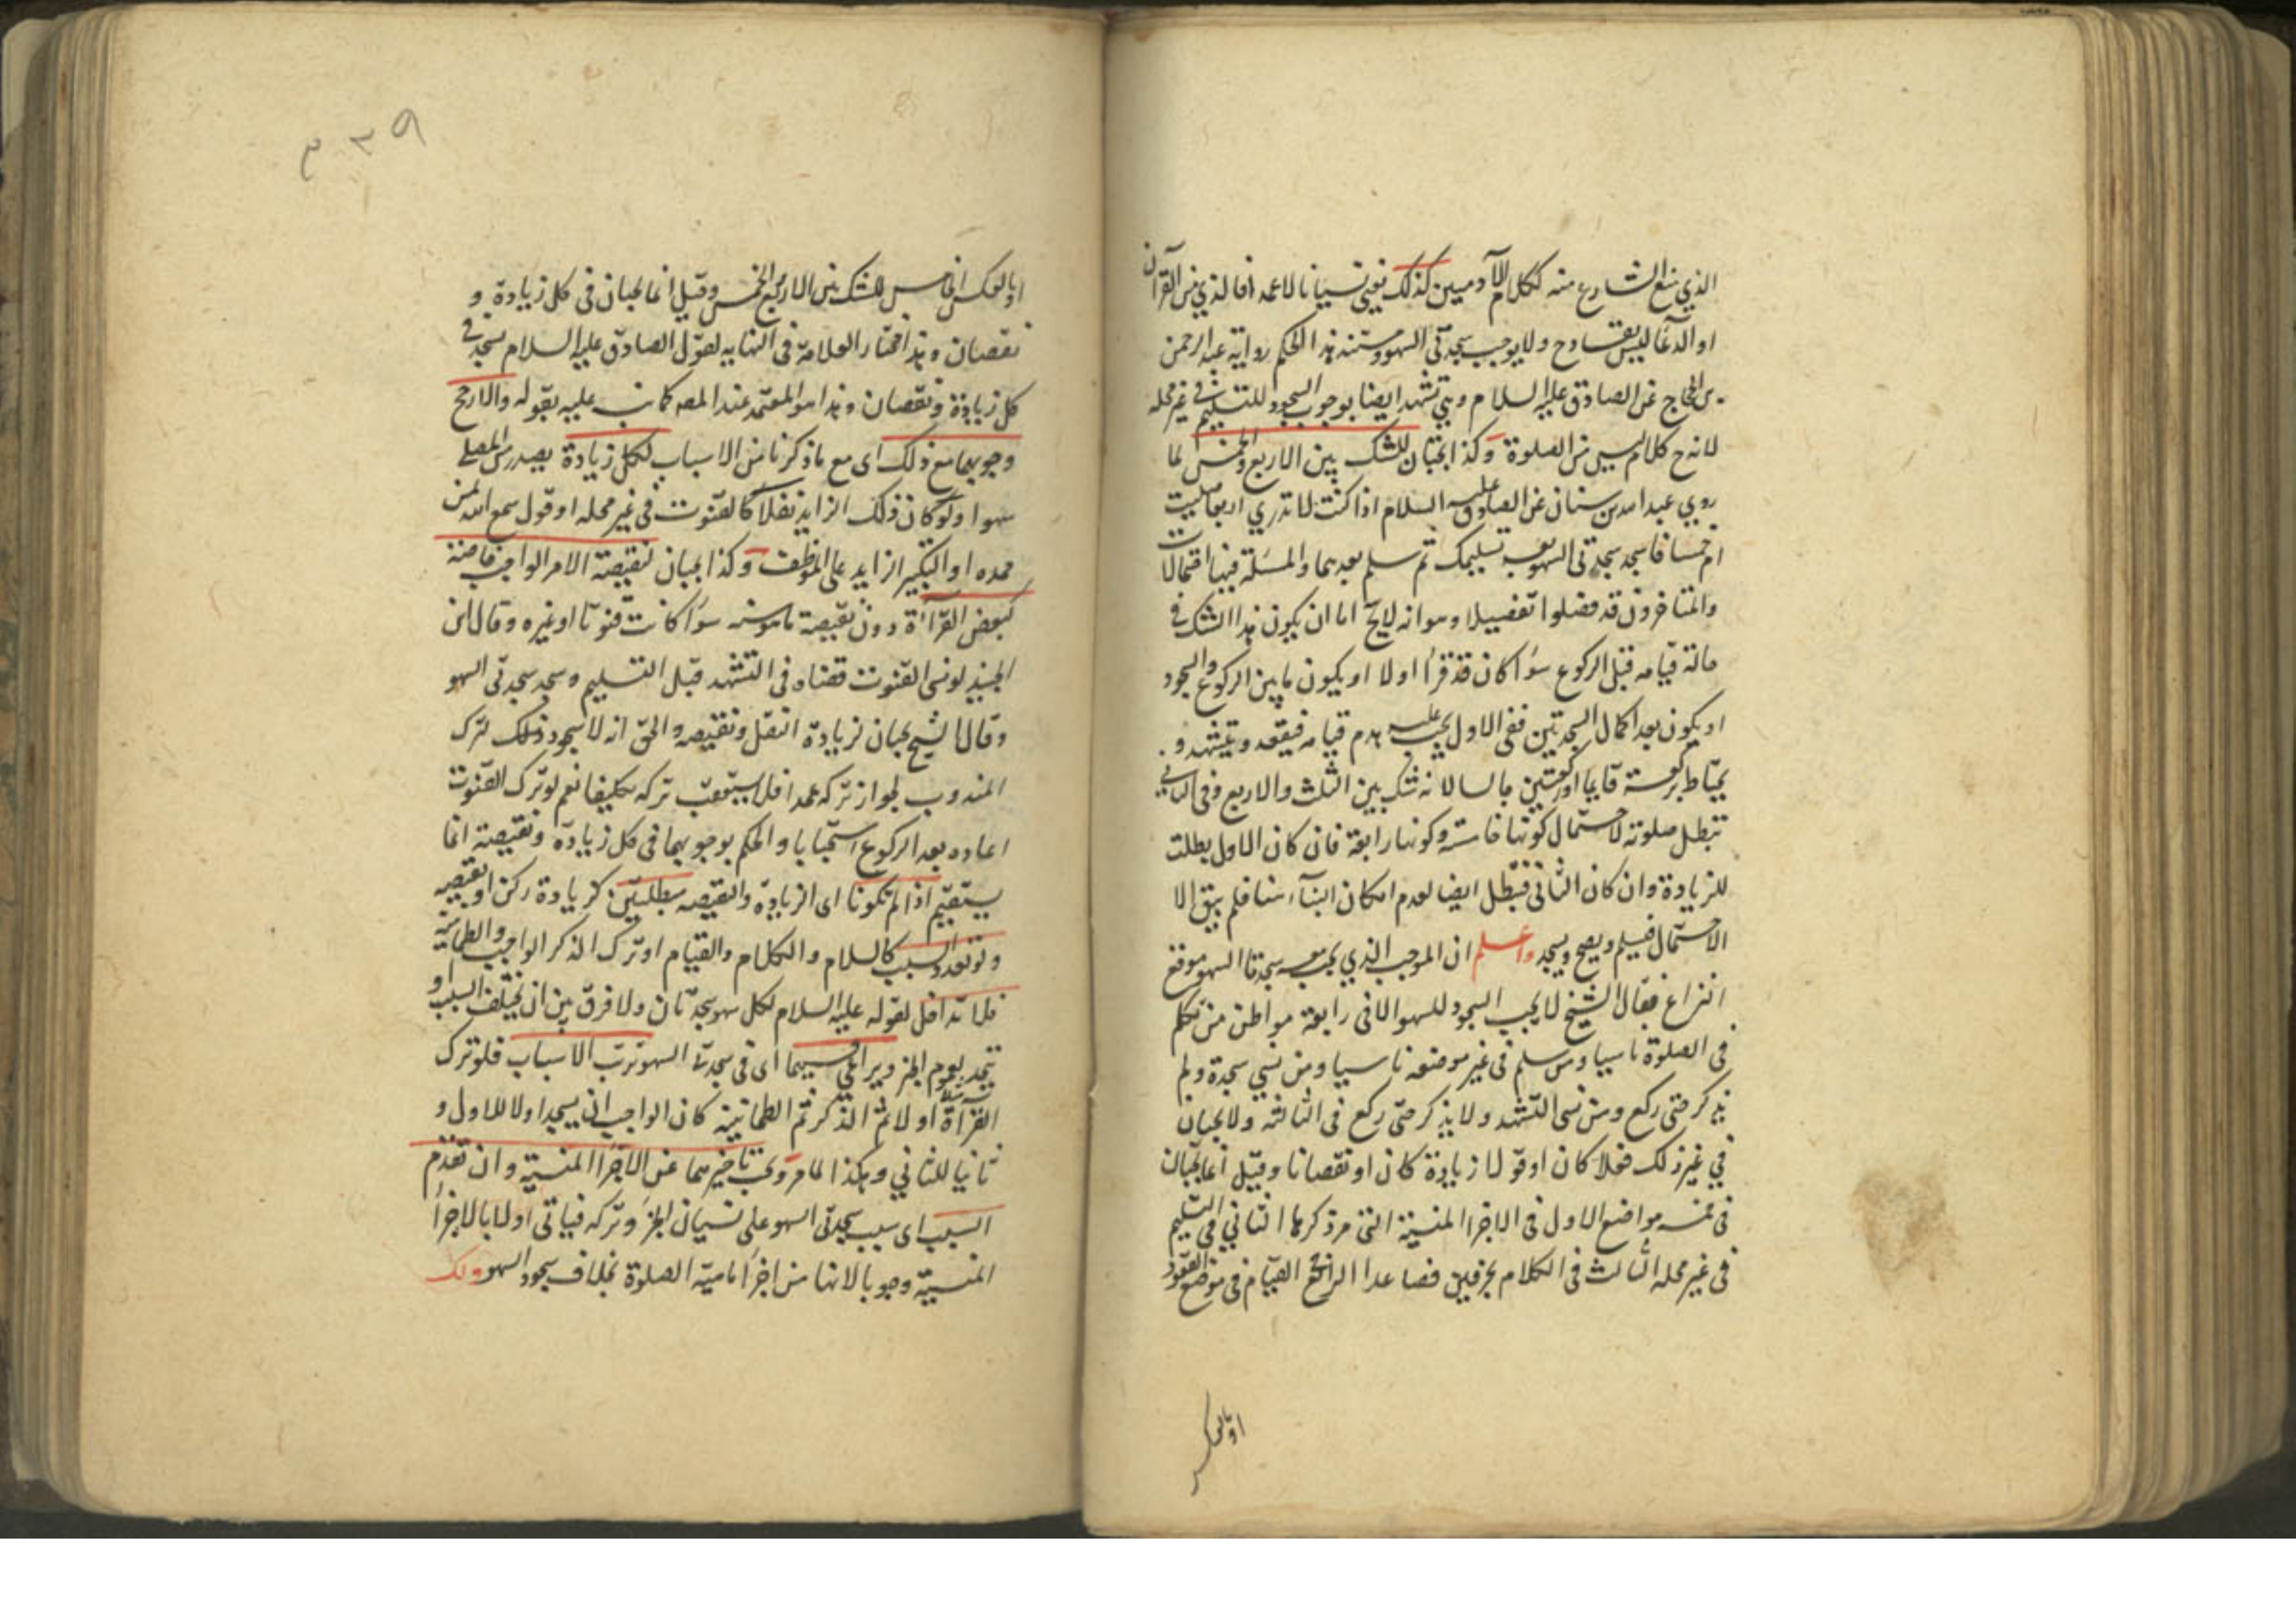 الذي منع الشارع منه ككلام الآدميين كذلك يعني نسيانا لا عمدا فالذي من القرآن
او الدعا ليس بقادح ولا يوجب سجدتي السهو ومستند هذا الحكم رواية عبد الرحمن
بن الحجاج عن الصادق عليه السلام وبني تشهد ايضا بوجوب السجود للتسليم في غير محله
لانه ح كلام ليس من الصلوة وكذا يجبان للشك بين الاربع والخمس لما
روي عبد الله بن سنان عن الصادق عليه السلام اذا كنت لا تدري اربعا صليت
ام خمسا فاسجد سجدتي السهو بعد تسليمك ثم سلم بعدهما والمسئلة فيها احتمالات
والمتاخرون قد فصلوا تفصيلا وهو انه لا يخ اما ان يكون هذا الشك في
حالة قيامه قبل الركوع سواء كان قد قرا اولا او يكون ما بين الركوع والسجود
او يكون بعد اكمال السجدتين ففي الاول يجب عليه هدم قيامه فيقعد ويتشهد و
يحتاط بركعة قايما او ركعتين جالسا لانه شك بين الثلث والاربع وفي الثاني
تبطل صلوته لاحتمال كونها خامسة وكونها رابعة فان كان الاول بطلت
للزيادة وان كان الثاني فتبطل ايضا لعدم امكان البناء هنا فلم يبق الا
الاحتمال فيسلم ويصح ويسجد واعلم ان الموجب الذي يجب معه سجدتا السهو موقع
النزاع فقال الشيخ لا يجب السجود للسهو الا في رابعة مواطن من تكلم
في الصلوة ناسيا ومن سلم في غير موضعه ناسيا ومن نسي سجدة ولم
يذكر حتى ركع ومن نسى التشهد ولا يذكر حتى ركع في الثالثة ولا يجبان
في غير ذلك فعلا كان او قولا زيادة كان او نقصانا وقيل انما يجبان
في خمسة مواضع الاول في الاجزا المنسية التي مر ذكرها الثاني في التسليم
في غير محله الثالث في الكلام بحرفين فصاعدا الرابع القيام في موضع القعود
او بالعكس
او بالعكس الخامس للشك بين الاربع والخمس وقيل انما يجبان في كل زيادة و
نقصان وهذا اختار العلامة في النهاية لقول الصادق عليه السلام تسجد في
كل زيادة ونقصان وهذا هو المعتمد عند المصـ كما نبه عليه بقوله والارجح
وجوبهما مع ذلك اى مع ما ذكرنا من الاسباب لكل زيادة يصدر من المصلي
سهوا ولو كان ذلك الزايد نفلا كالقنوت في غير محله او قول سمع الله لمن
حمده او التكبير الزايد على الموظف وكذا يجبان لنقيصة الامر الواجب خاصة
كبعض القرآءة دون نقيصة ما هو سنة سواء كانت قنوتا او غيره وقال ابن
الجنيد لو نسى القنوت قضاه في التشهد قبل التسليم وسجد سجدتي السهو
وقال الشيخ يجبان لزيادة النفل ونقيصه والحق انه لا سجود ذلك لترك
المندوب لجواز تركه عمدا فلا يستعقب تركه تكليفا نعم لو ترك القنوت
اعاده بعد الركوع استحبابا والحكم بوجوبهما في كل زيادة ونقيصة انما
يستقيم اذا لم تكونا اى الزيادة والنقيصه مبطلتين كزيادة ركن او نقيصه
ولو تعدد السبب كالسلام والكلام والقيام او ترك الذكر الواجب والطمانينة
فلا تداخل لقوله عليه السلام لكل سهو سجدتان ولا فرق بين ان يختلف السبب او
يتحد لعموم الخبر ويراعي فيهما اى في سجدتا السهو ترتب الاسباب فلو ترك
القرآءة اولا ثم الذكر ثم الطمانينة كان الواجب ان يسجد اولا للاول و
ثانيا للثاني وهكذا لما مر ويجب تاخيرهما عن الاجزاء المنسية وان تقدم
السبب اى سبب سجدتي السهو على نسيان الجزء وتركه فياتى اولا بالاجزاء
المنسية وجوبا لانها من اجزاء ماهية الصلوة بخلاف سجود السهو ولك